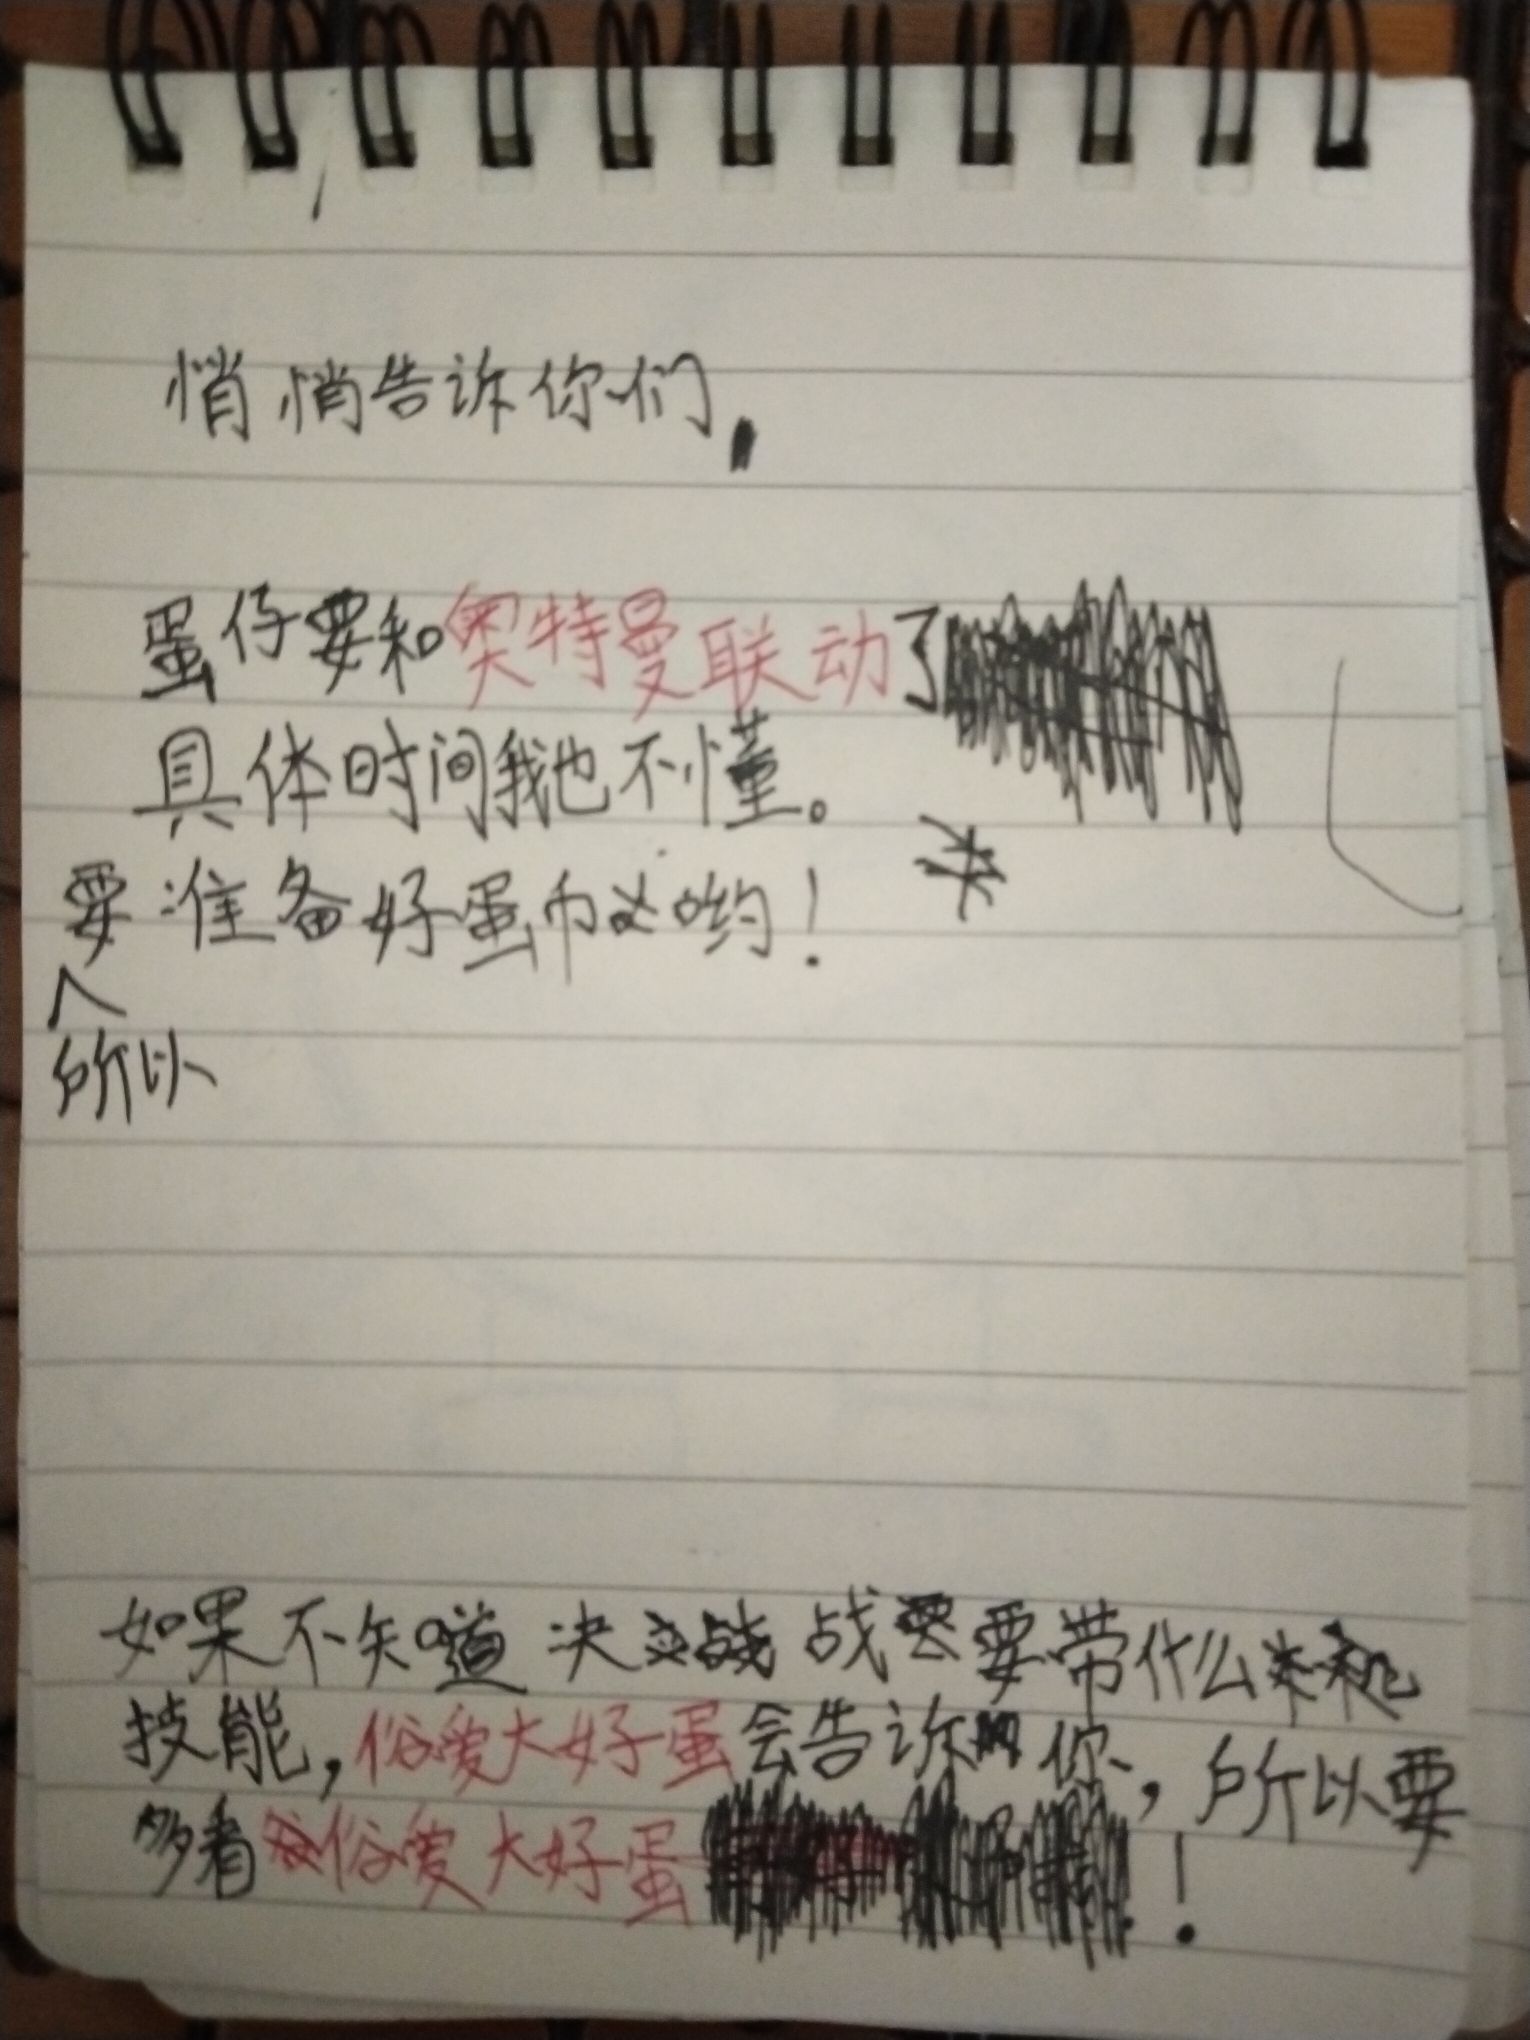 悄悄告诉你们,
蛋仔要和奥特曼联动了
具体时间我也不懂。
要准备好蛋币哟!
所以
如果不知道决战要带什么
技能,俗爱大好蛋会告诉你,所以要
多看俗爱大好蛋!